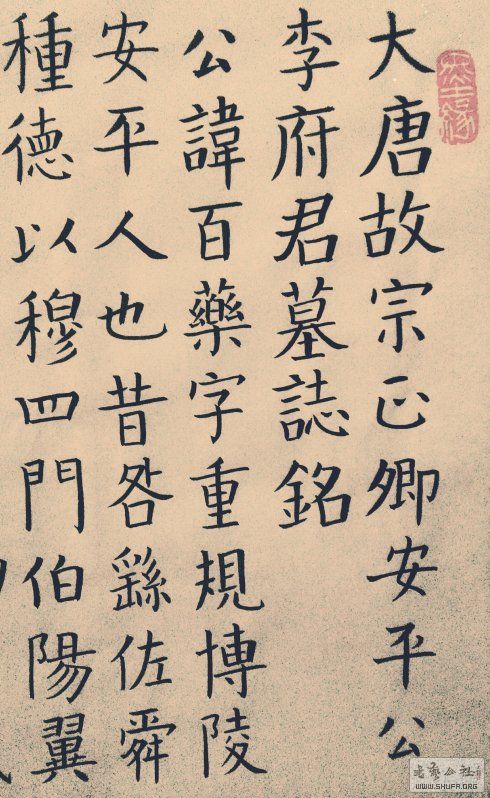 大唐故宗正卿安平公
李府君墓誌銘
公諱百藥字重規博陵
安平人也昔咎繇佐舜
種德以穆四門伯陽翼
WWW.SHUFA.ORG